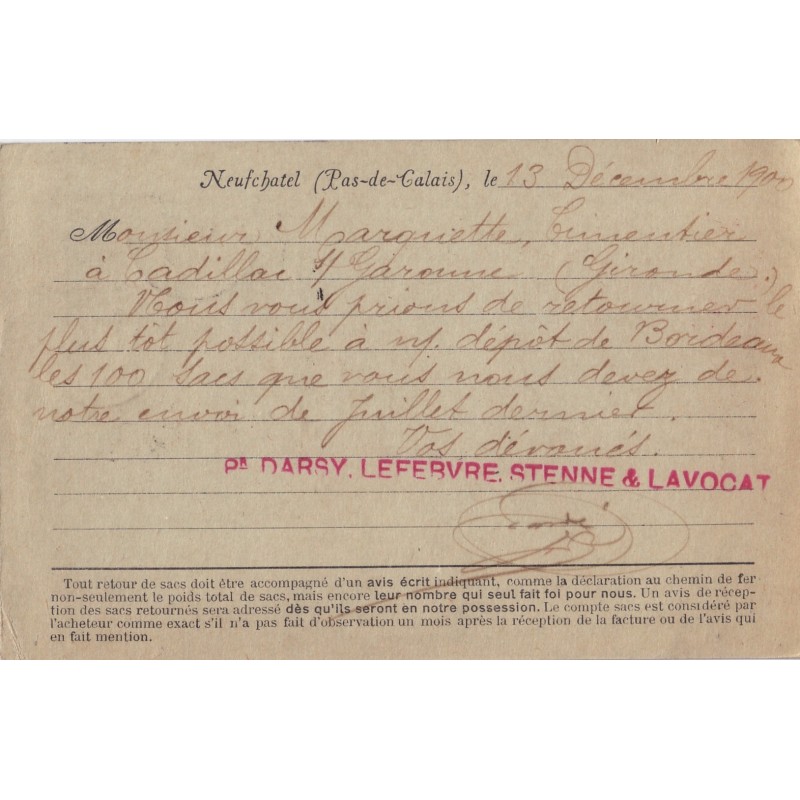 Neufchatel (Pas-de-Calais), le 13 Décembre 1900
Monsieur Marguette, Cimentier
à Cadillac s/ Garonne (Gironde.)
Nous vous prions de retourner le
plus tôt possible à n/. dépôt de Bordeaux
les 100 sacs que vous nous devez de
notre envoi de Juillet dernier.
Vos dévoués.
Pn DARSY, LEFEBVRE, STENNE & LAVOCAT
Tout retour de sacs doit être accompagné d'un avis écrit indiquant, comme la déclaration au chemin de fer
non-seulement le poids total de sacs, mais encore leur nombre qui seul fait foi pour nous. Un avis de récep-
tion des sacs retournés sera adressé dès qu'ils seront en notre possession. Le compte sacs est considéré par
l'acheteur comme exact s'il n'a pas fait d'observation un mois après la réception de la facture ou de l'avis qui
en fait mention.